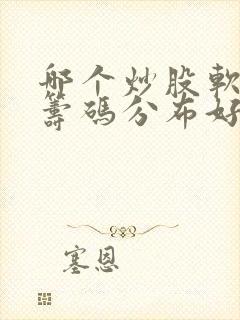 哪个炒股軟
籌碼分布好
塞恩